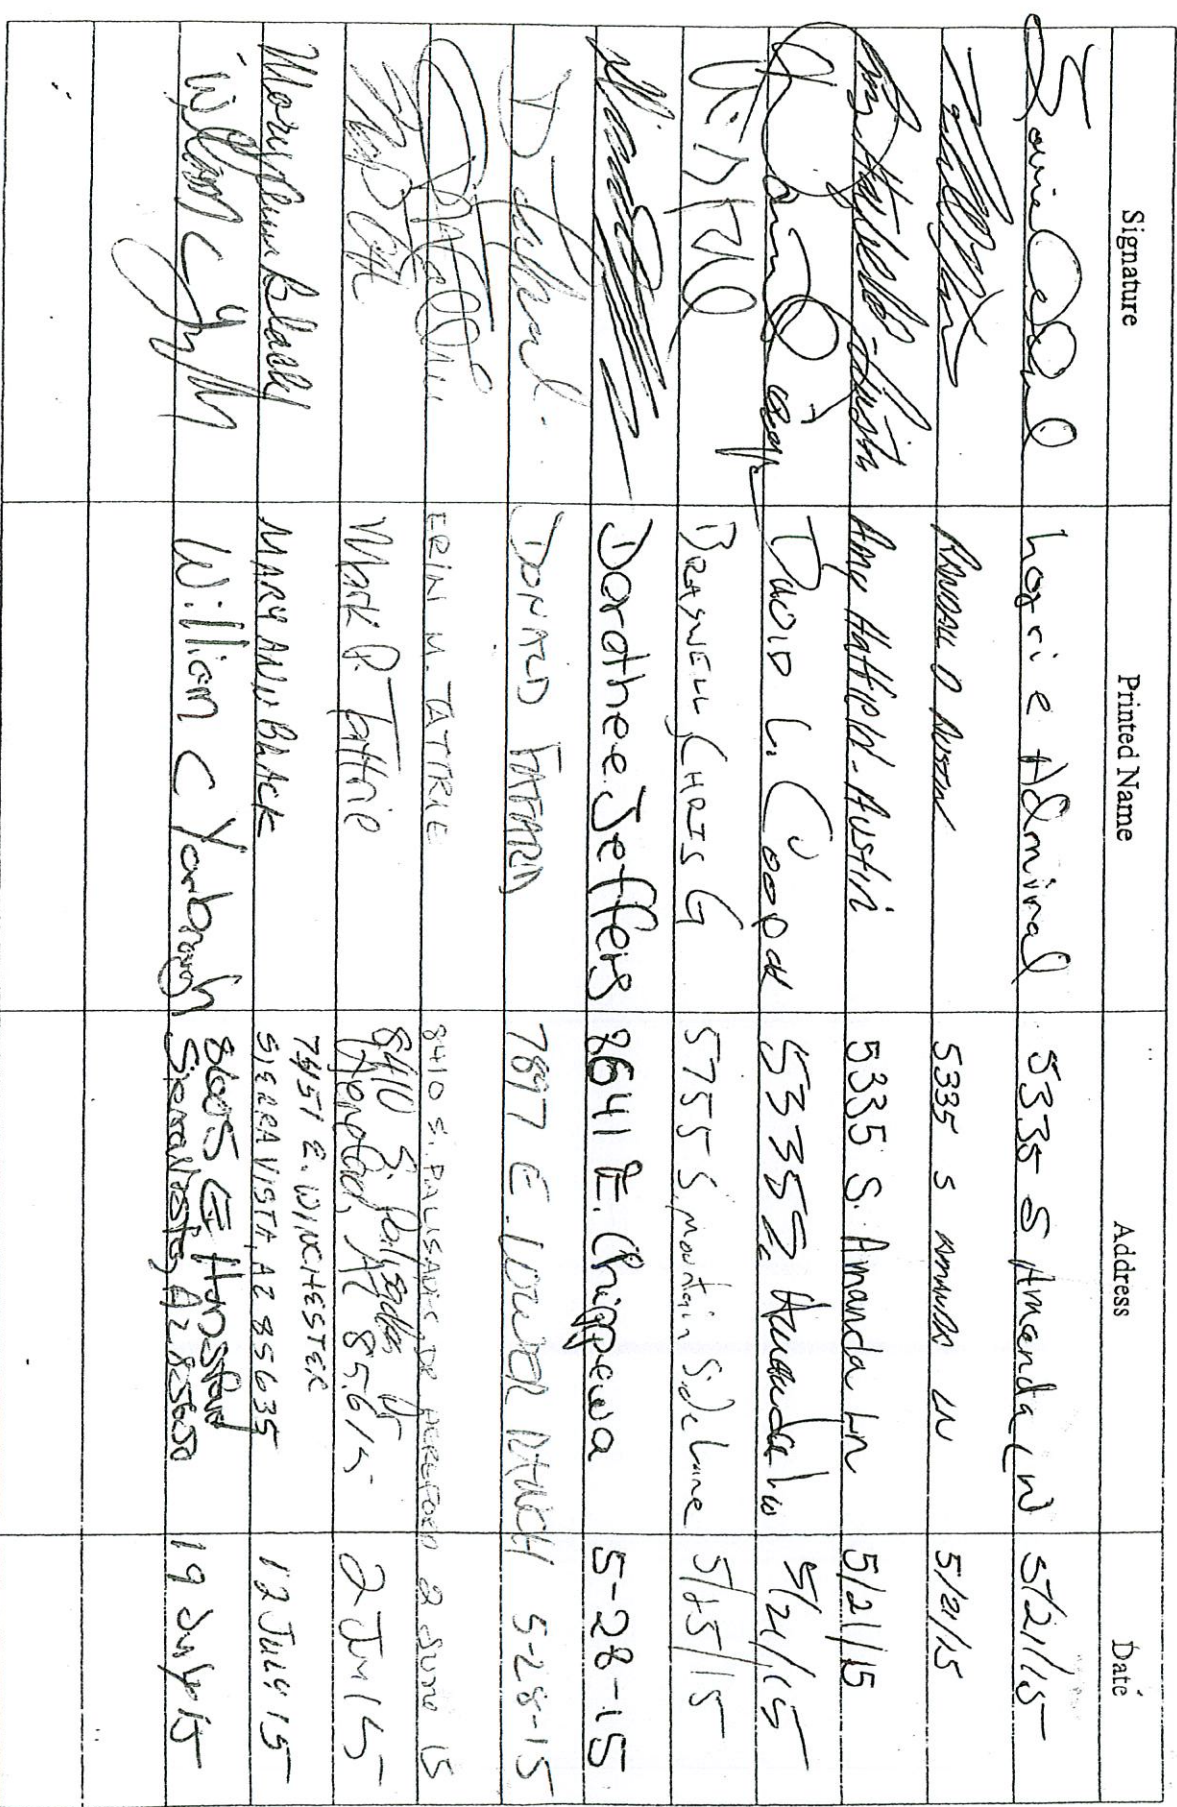 Signature Printed Name Address Date
Lorrie Admiral 5335 S Amanda LN 5/21/15
RANDALL D AUSTIN 5335 S AMANDA LN 5/21/15
Amy Hatfield-Austin Amy Hatfield-Austin 5335 S. Amanda Ln 5/21/15
DAVID L. Cooper 5335 S. Amanda Ln 5/21/15
BRASWELL, CHRIS G 5755 S. Mountain Side Lane
Dorothee Jeffers 8641 E. Chippewa 5-28-15
DONALD 7897 E. RANCH 5-28-15
ERIN M. TATTRIE 8410 S. PALISADES DR HEREFORD 2 June 15
Mark P. Tattrie 8410 S. Palisades Dr
Hereford, AZ 85615 2 Jun 15
Mary Ann Black MARY ANN BLACK 7451 E. WINCHESTER
SIERRA VISTA, AZ 85635 12 JULY 15
William C Yarbrough
Sierra Vista, AZ 19 July 15